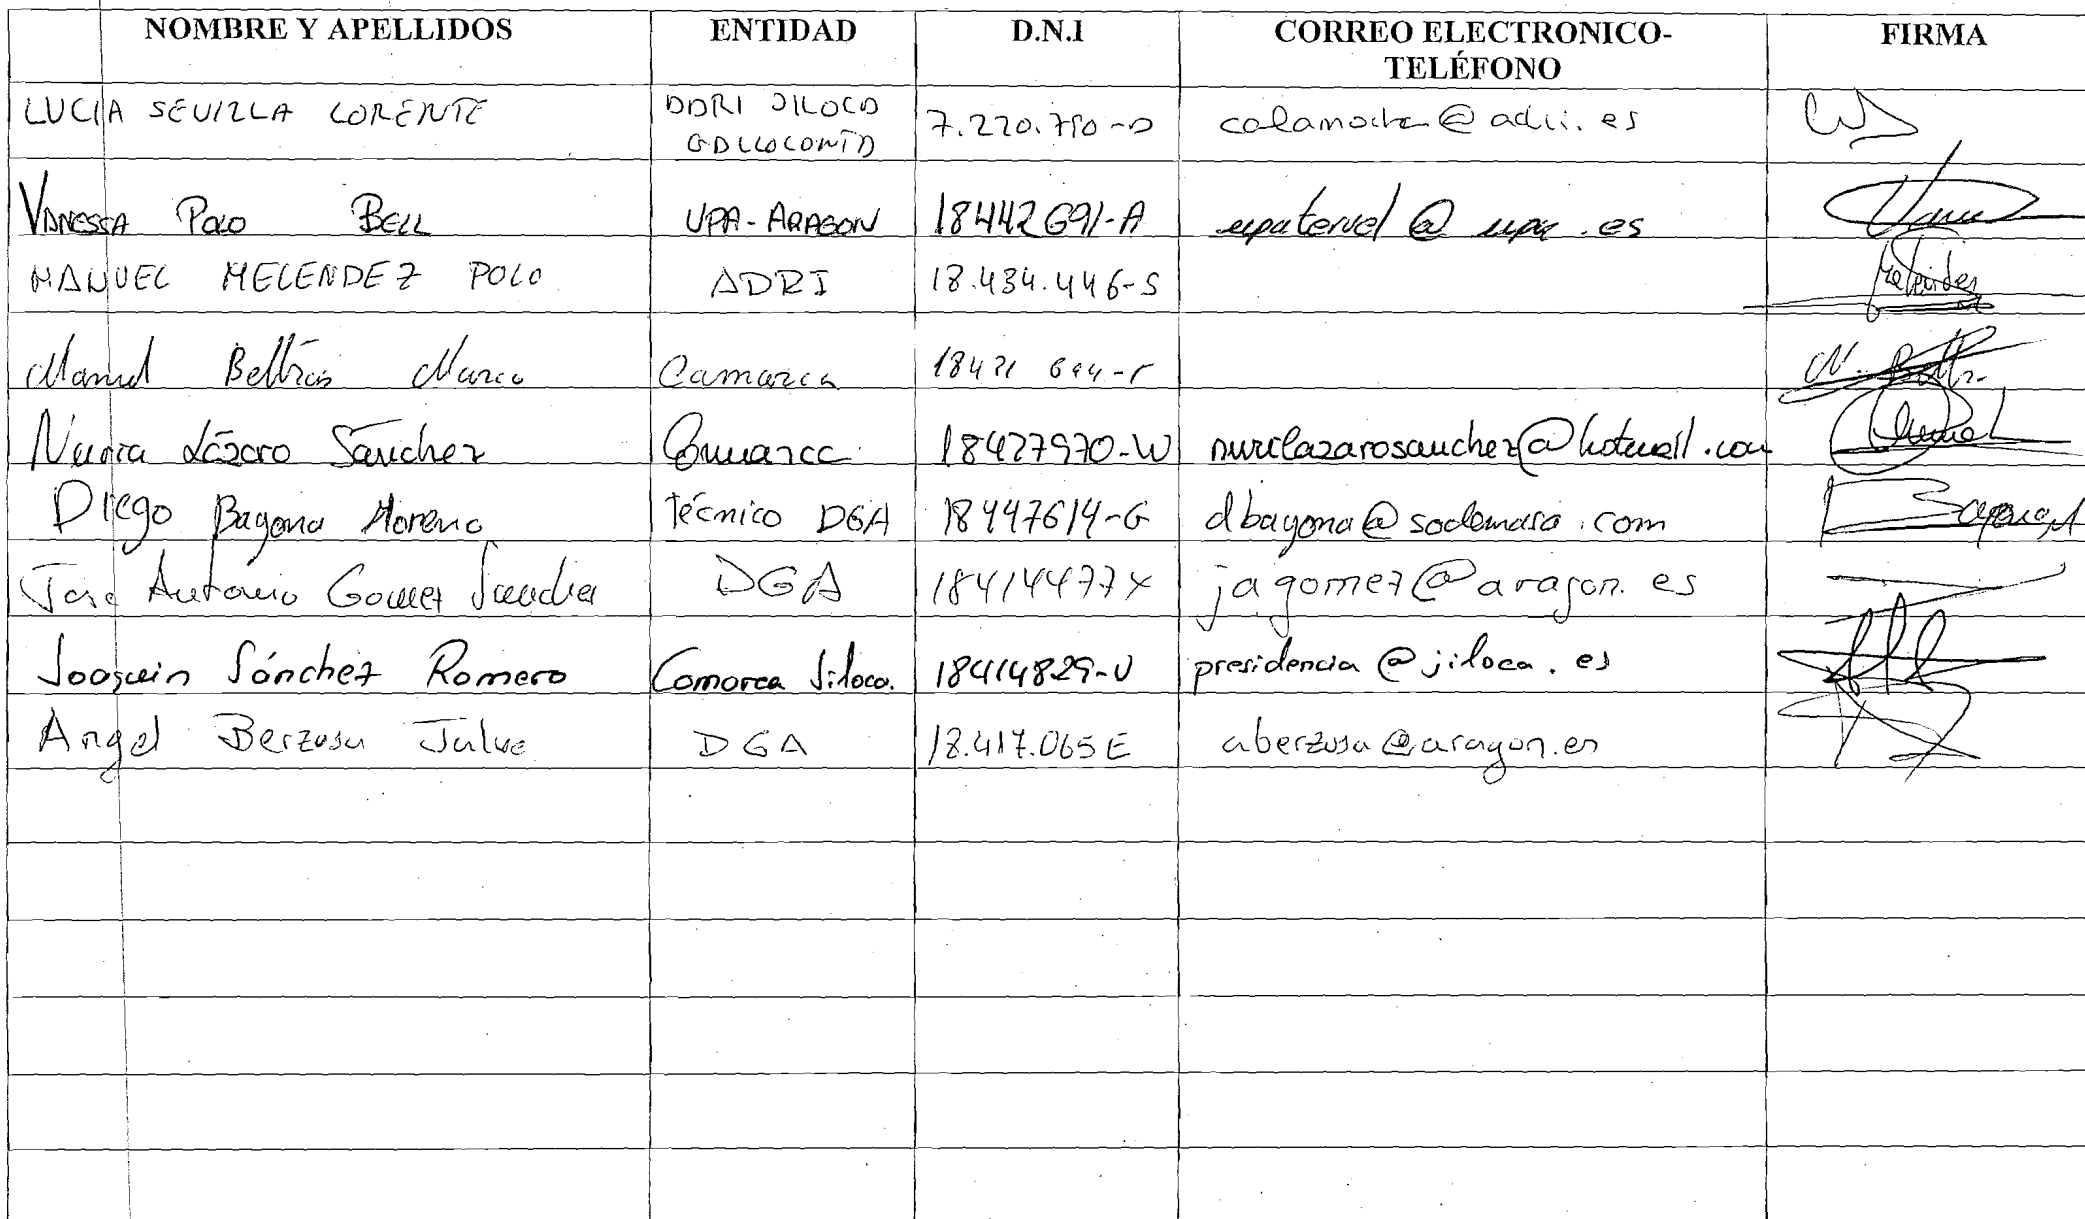 NOMBRE Y APELLIDOS ENTIDAD D.N.I CORREO ELECTRONICO- FIRMA
TELÉFONO
LUCIA SEVILLA LORENTE ADRI JILOCA 7.220.750-D calamocha@adri.es
GALLOCANTA
VANESSA POLO BELL UPA-ARAGON 18442691-A upateruel@upa.es
MANUEL MELENDEZ POLO ADRI 18.434.446-S
Manuel Beltrán Marco Comarca
Nuria Lázaro Sánchez Comarca 18427970-W nurilazarosanchez@hotmail.com
Diego Bayona Moreno Técnico DGA 18447614-G dbayona@sodemasa.com
Jose Antonio Gomez Sanchez DGA 18414477X jagomez@aragon.es
Joaquin Sánchez Romero Comarca Jiloca. 18414829-V presidencia@jiloca.es
Angel Berzosa Julve DGA 18.417.065E aberzosa@aragon.es